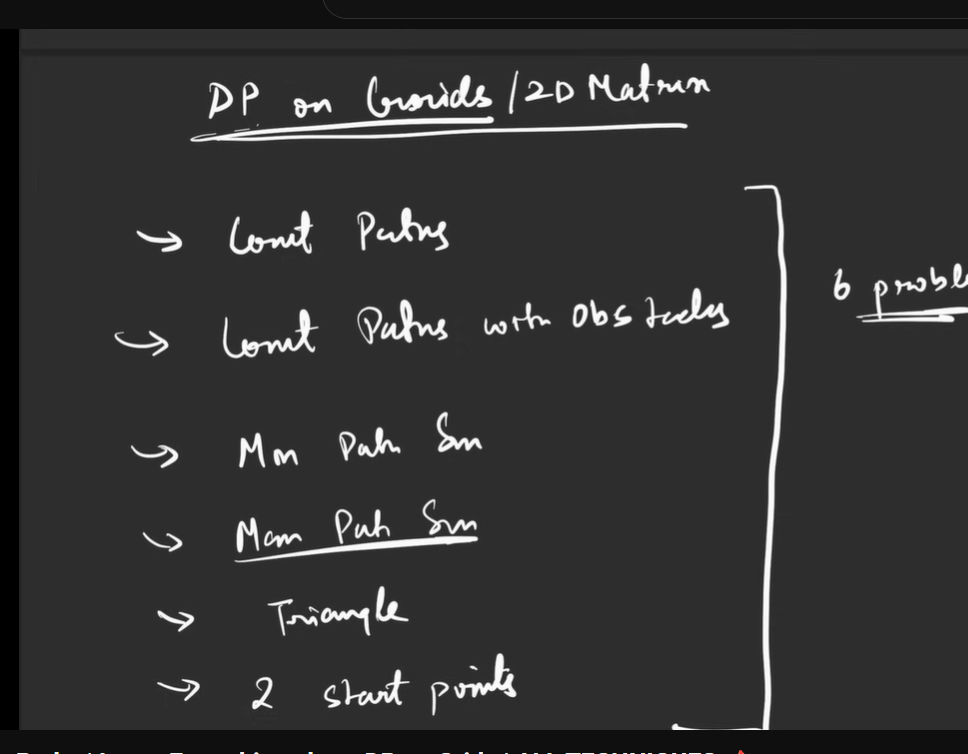 DP on Grids / 2D Matrix
→ Count Paths
→ Count Paths with Obstacles
6 proble
→ Min Path Sum
→ Max Path Sum
→ Triangle
→ 2 start points